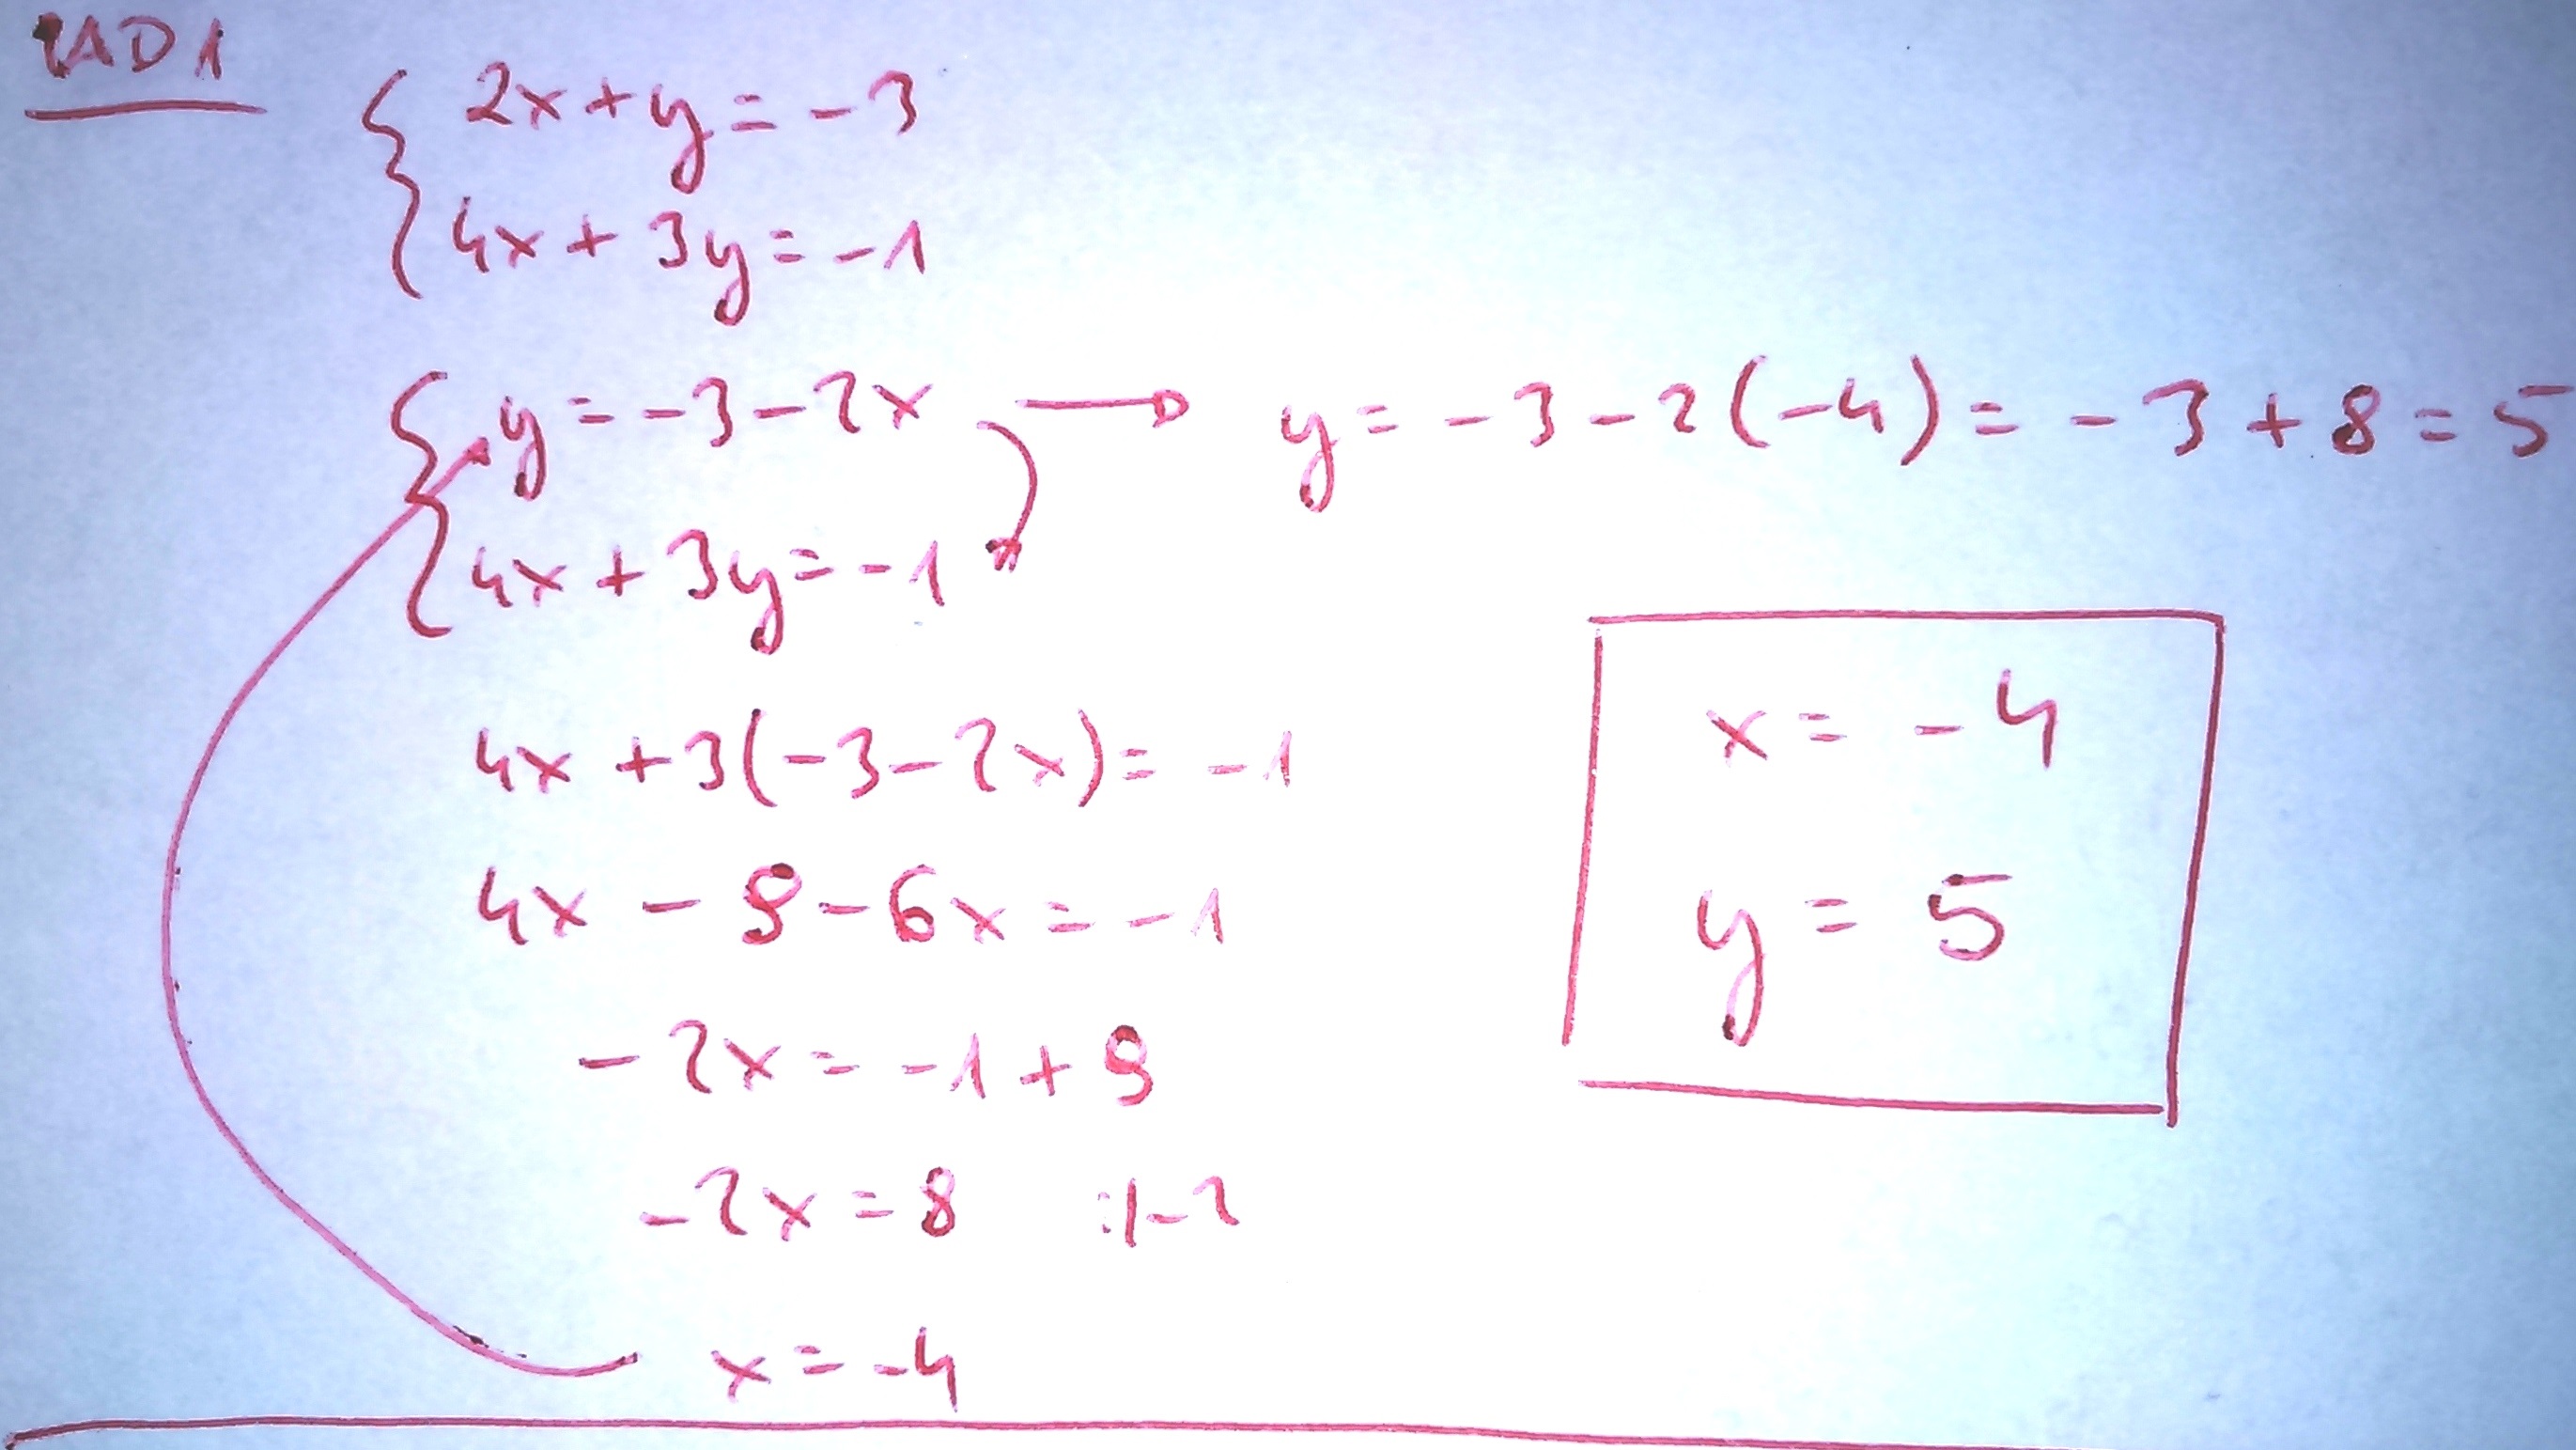 ZAD 1
2x + y = -3
4x + 3y = -1
y = -3 - 2x → y = -3 - 2(-4) = -3 + 8 = 5
4x + 3y = -1
4x + 3(-3 - 2x) = -1
4x - 9 - 6x = -1
-2x = -1 + 9
-2x = 8 :|-2
x = -4
x = -4
y = 5